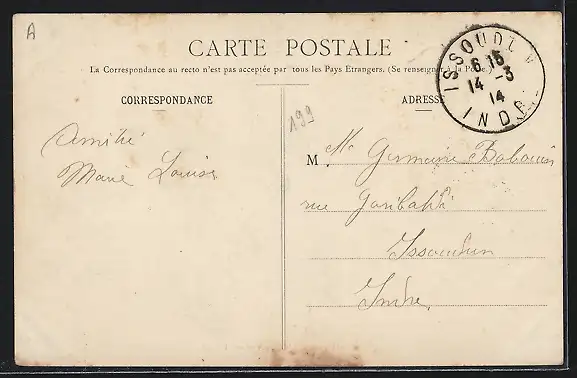 A
CARTE POSTALE
La Correspondance au recto n'est pas acceptée par tous les Pays Etrangers. (Se renseigner à la Poste.)
CORRESPONDANCE
ADRESSE
ISSOUDUN
6 15
14 -3
14
INDRE
199
Amitié
Marie Louise
M. Mlle Germaine Babouin
rue Garibaldi
Issoudun
Indre